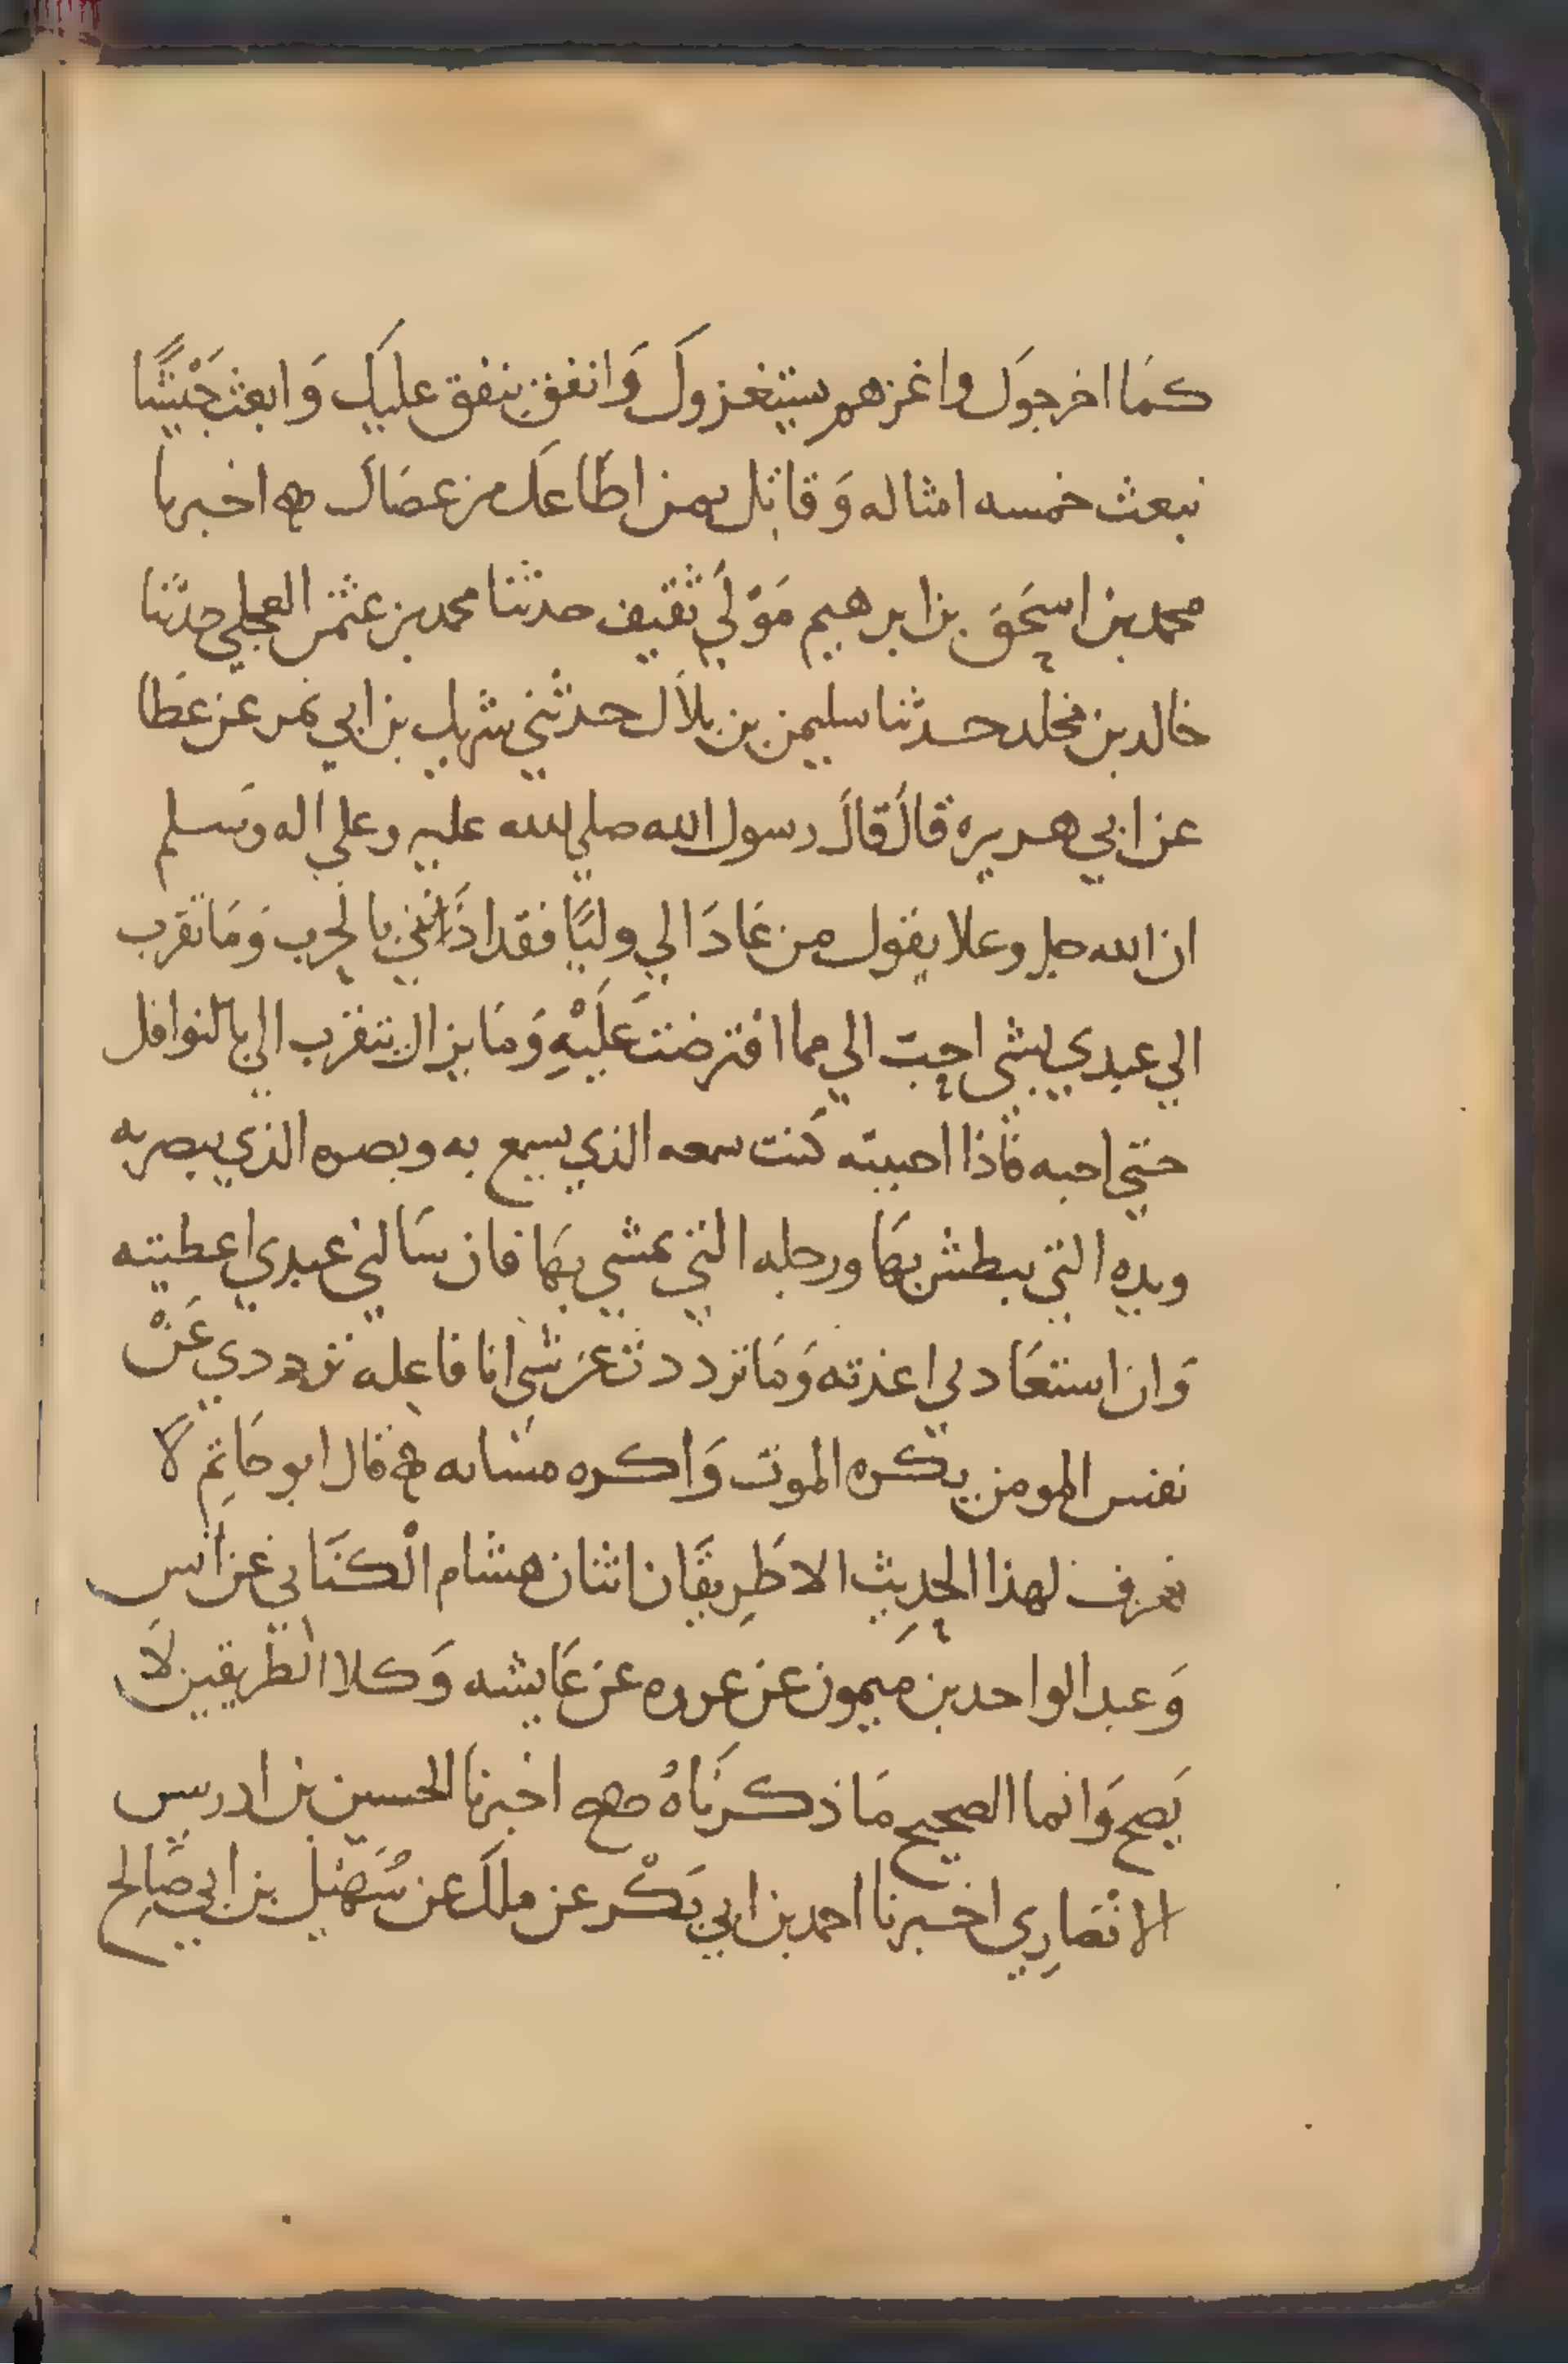 كمَا اخرجوكَ واغزهم سيتغزوكَ وَانفق ينفق عليكَ وَابعث جَيْشًا
نبعث خمسه امثاله وَقاتل بمن اطَاعكَ من عصَاكَ اخبرنا
محمد بن اسحَقَ بن ابرهيم مَوْلَي ثقيف حدثنا محمد بن عثمن العجلي حدثنا
خالد بن مخلد حدثنا سليمن بن بلَال حدثني شريك بن ابي نمر عن عطَا
عن ابي هريره قالَ قالَ رسول الله صلي الله عليه وعلي اله وسلم
ان الله جل وعلا يقول من عَادَا لي وليًا فقد اذَانني بالحَرب وَمَا تقرب
الي عبدي بشي احبّ الي مما افترضت عَلَيْهِ وَمَا يزال يتقرب الي بالنوافل
حتي احبه فاذا احببته كنت سمعه الذي يسمع به وبصره الذي يبصر به
ويده التي يبطش بهَا ورجله التي يمشي بهَا فان سَالني عبدي اعطيته
وَان استعَاد ني اعذته وَمَا ترددت عن شي انا فاعله ترددي عَنْ
نفس المومن يكره الموت وَاكره مسَاته قال ابو حَاتِم لا
نعرف لهذا الحدِيث الا طَرِيقَان اثنان هشام الكنَاني عن انس
وَعبد الواحد بن ميمون عن عروه عن عَايشه وَكلا الطريقين لَا
يَصح وَانما الصحيح مَا ذكرنَاهُ اخبرنا الحسين بن ادريس
الانْصَارِي اخبرنا احمد بن ابي بَكْر عن ملك عن سُهَيْل بن ابي صَالح